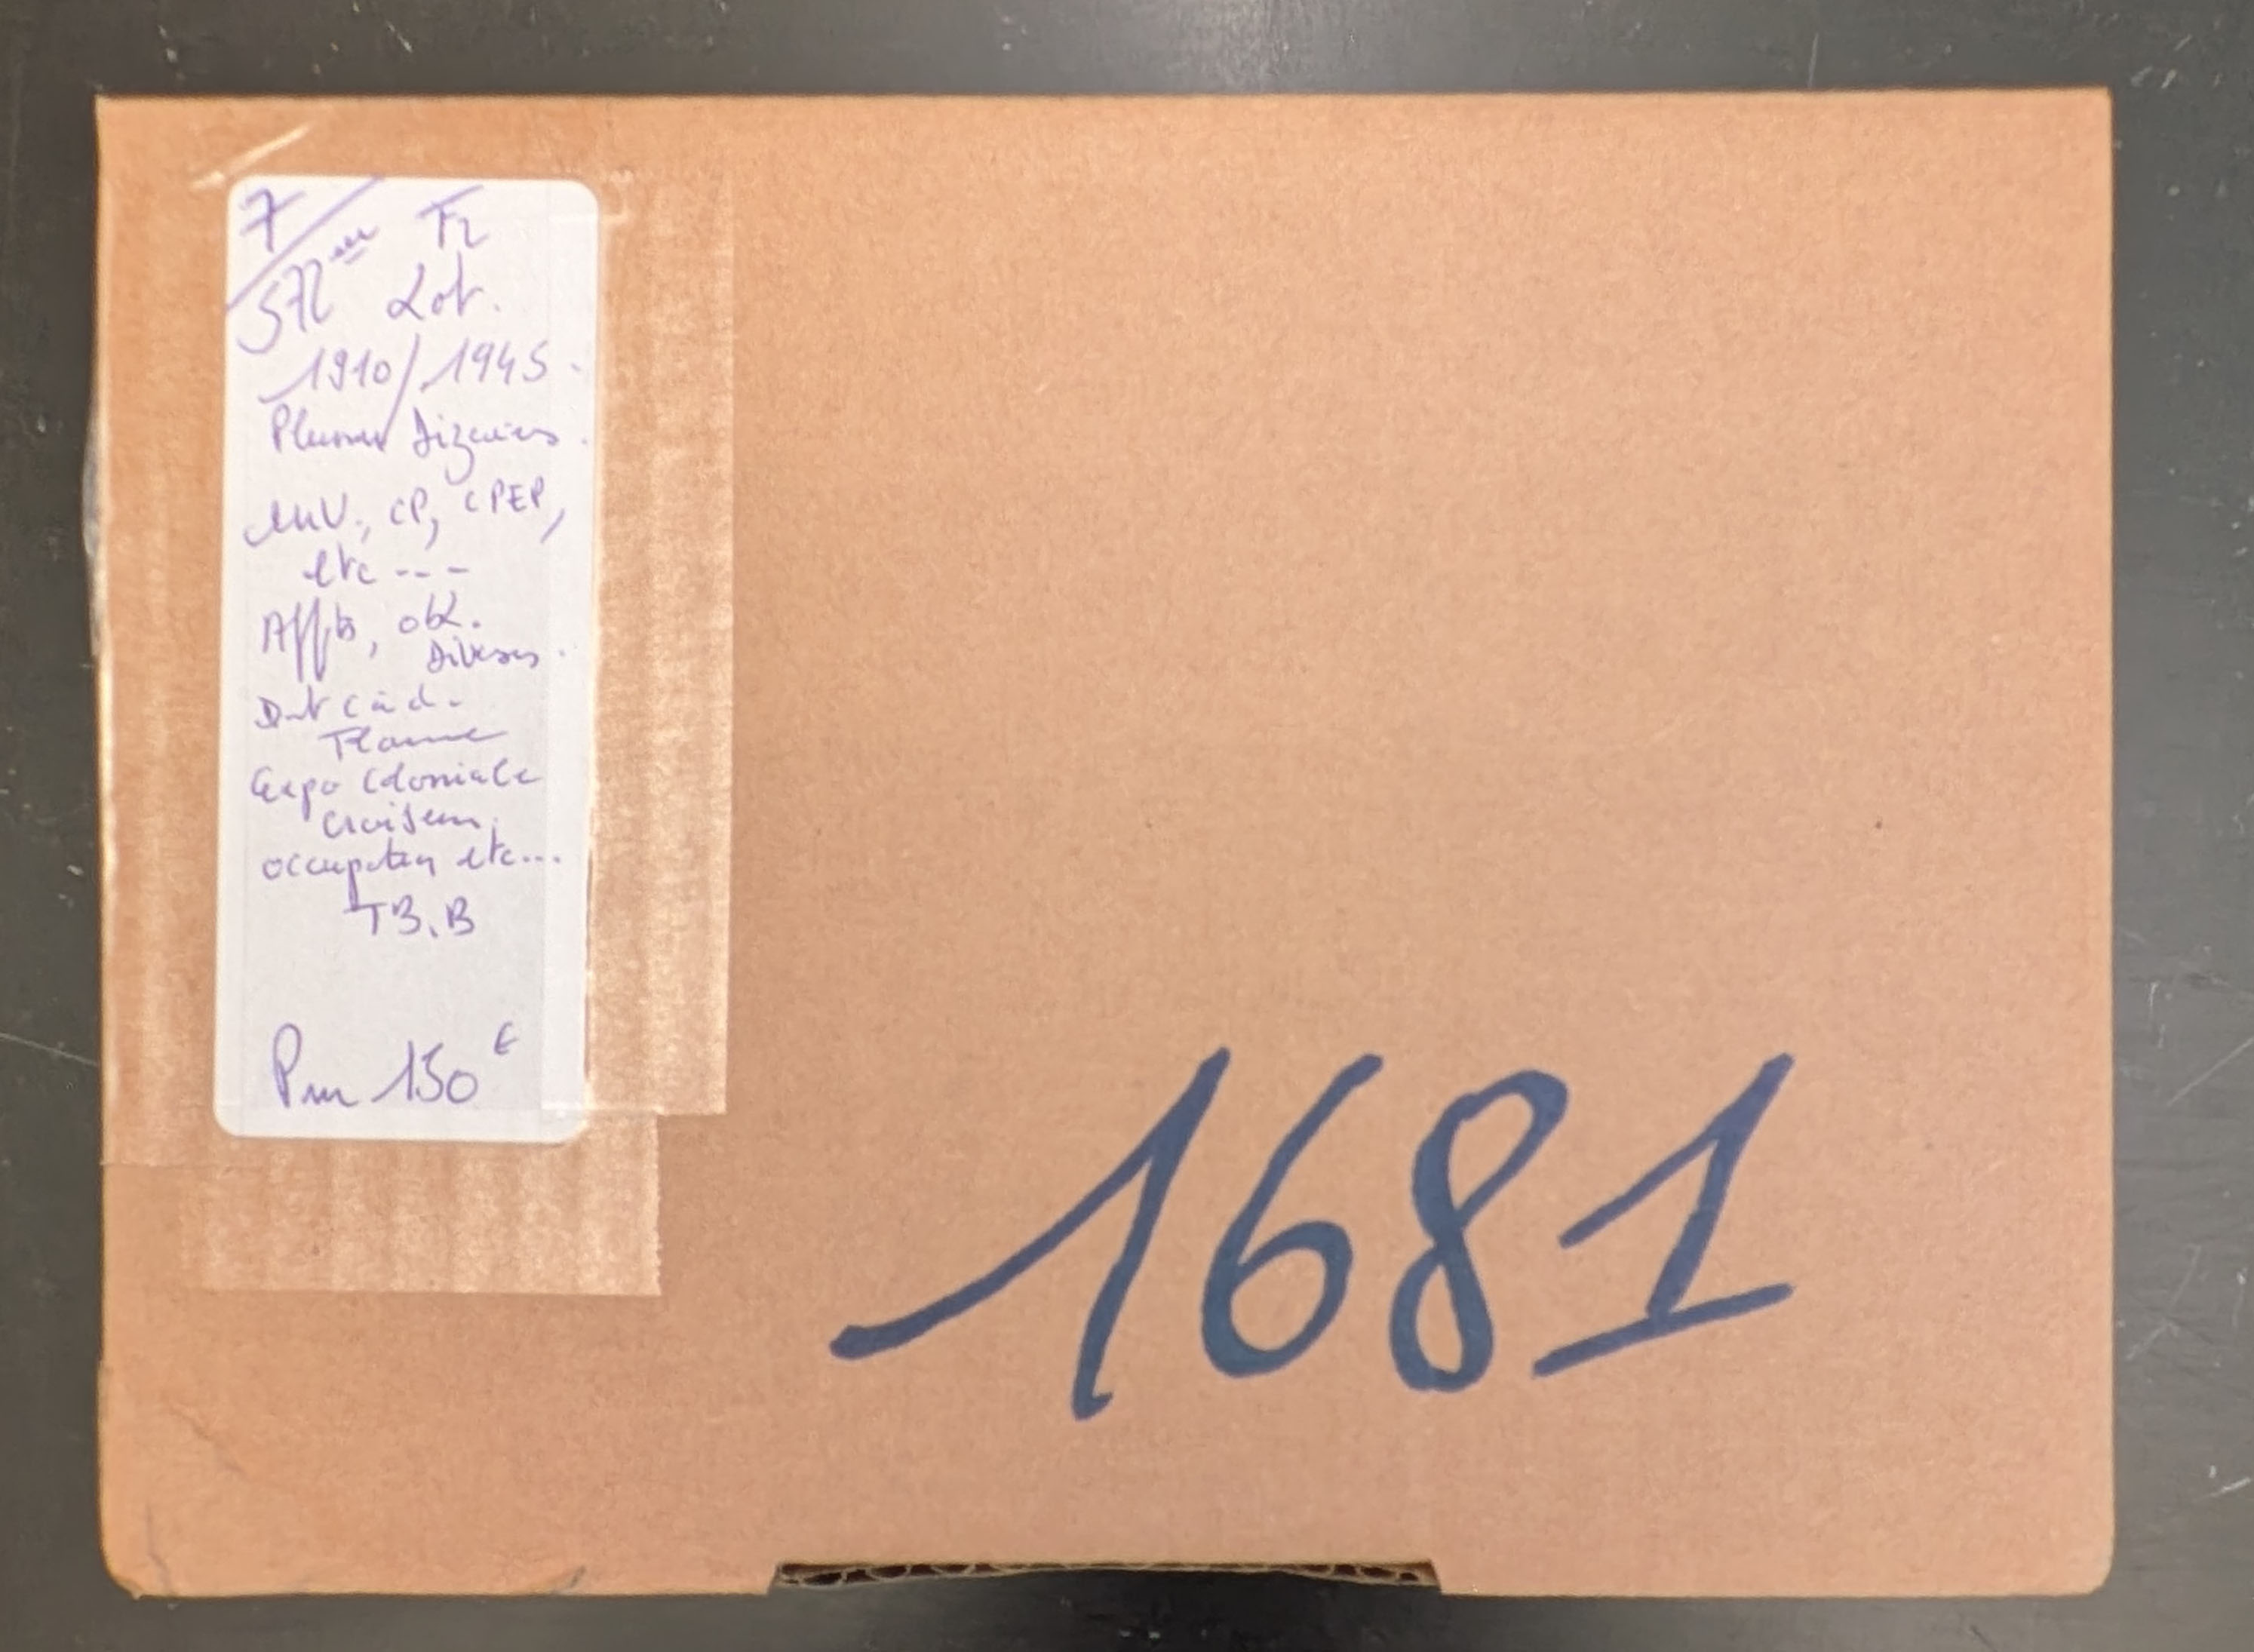 7
572 Fr
Lot.
1910/1945.
Plusieurs dizaines.
CP, CPEP,
etc ---
Affts, obl.
Diverses.
Dnt càd.
Flamme
Expo Coloniale
Croiseur
occupation etc...
TB.B
150€
1681